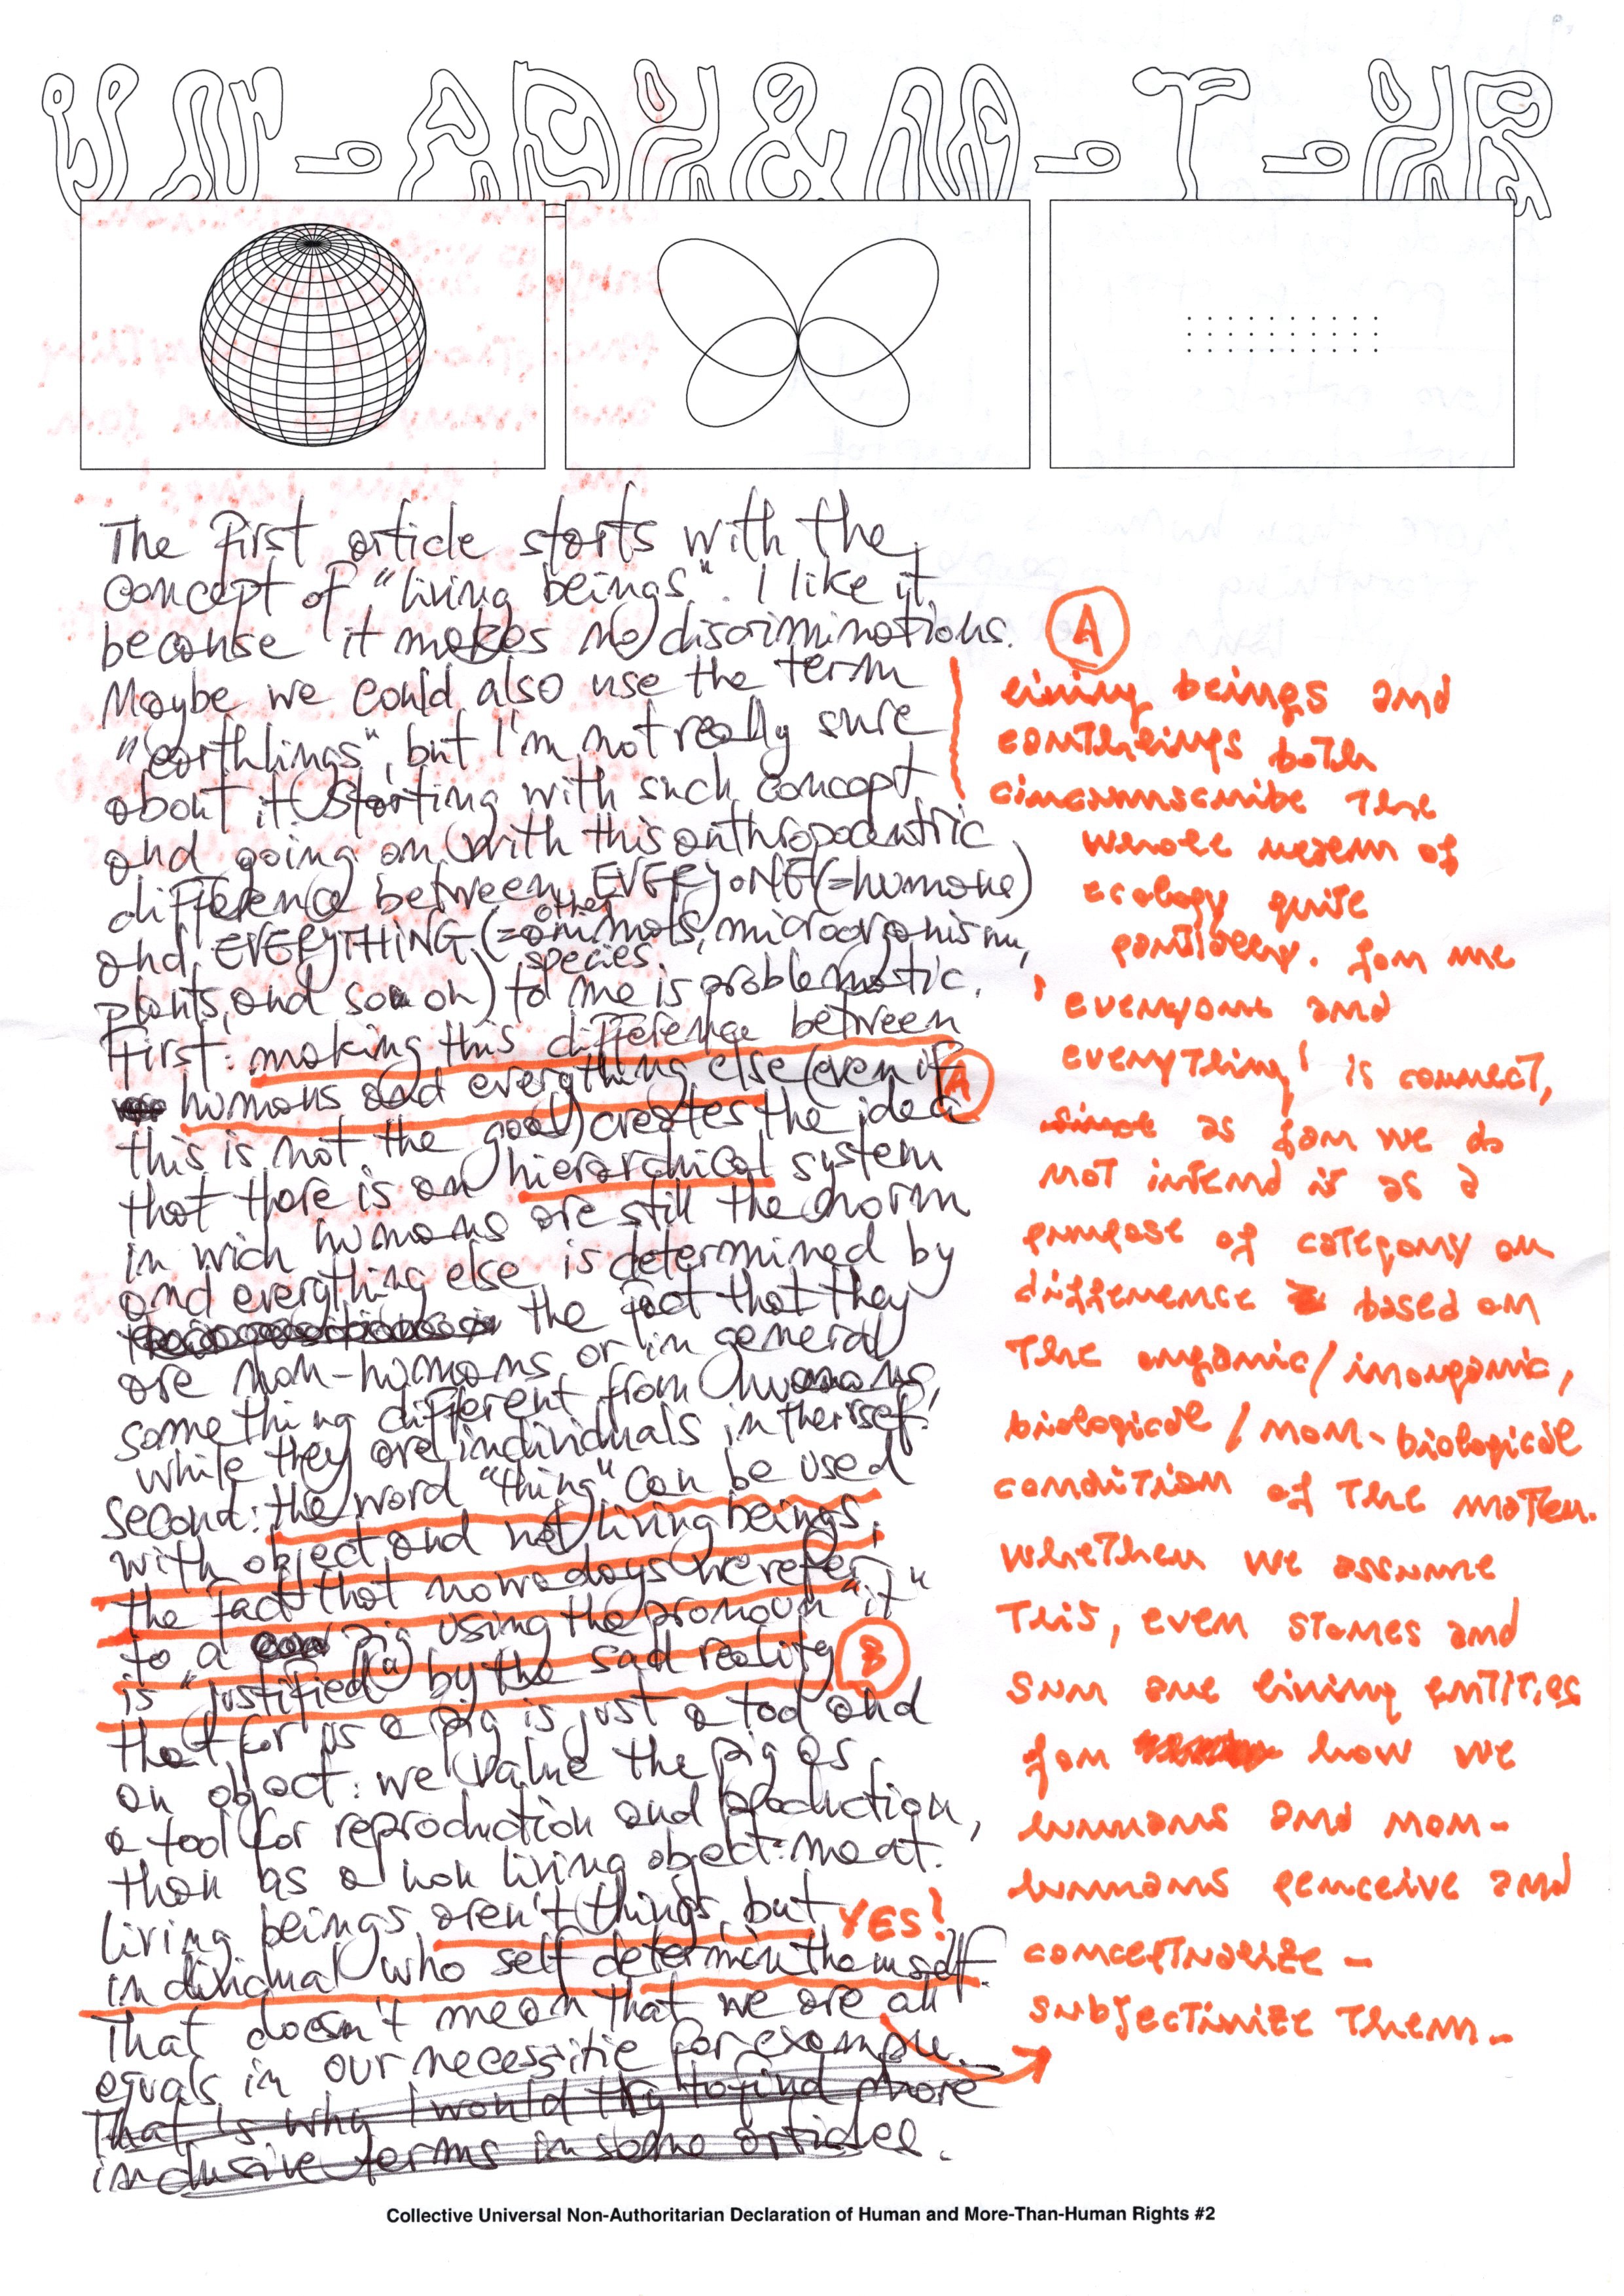 UN-ADH&M-T-HR
The First article starts with the
concept of "living beings". I like it
becouse it makes no discriminations.
Maybe we could also use the term
"earthlings", but I'm not really sure
about it. Starting with such concept
and going on with this anthropocentric
difference between EVERYONE (=humans)
and EVERYTHING (= other animals, microorganism,
species
plants, and so on) to me is problematic.
First: making this difference between
humans and everything else (even if
this is not the goal) creates the idea
that there is an hierarchical system
in wich humans are still the norm
and everything else is determined by
the fact that they
are non-humans or in general
something different from humans,
while they are individuals in therself.
second: the word "thing" can be used
with object and not living beings;
the fact that nowadays we refer
to a pig using the pronoun "it"
is "justified" by the sad reality
that for us a pig is just a tool and
an object: we value the pig as
a tool for reproduction and production,
than as a non living object: meat.
living beings aren't things, but
individual who self determin themself.
That doesn't mean that we are all
equals in our necessitie for example.
That is why I would try to find more
inclusive terms in some articles.
A
living beings and
earthlings both
circumscribe the
whole realm of
ecology quite
partially. for me
'everyone and
everything' is connect,
since as far we do
not intend it as a
purpose of category or
difference based on
the organic/inorganic,
biological/non-biological
condition of the matter.
Whether we assume
this, even stones and
sun are living entities
for how we
humans and non-
humans perceive and
conceptualize -
subjectivize them.
A
B
YES!
Collective Universal Non-Authoritarian Declaration of Human and More-Than-Human Rights #2